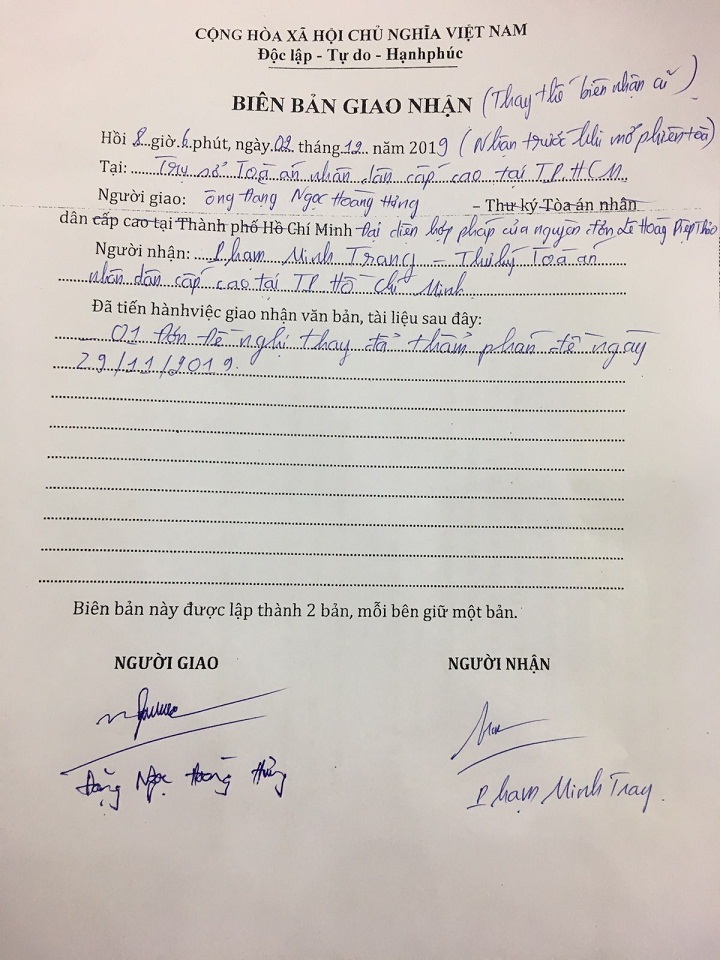 CỘNG HÒA XÃ HỘI CHỦ NGHĨA VIỆT NAM
Độc lập - Tự do - Hạnhphúc
BIÊN BẢN GIAO NHẬN (Thay thế biên nhận cũ)
Hồi 8 giờ 6 phút, ngày 02 tháng 12 năm 2019 (Nhận trước khi mở phiên tòa)
Tại: Trụ sở Toà án nhân dân cấp cao tại T.P. HCM.
Người giao: ông Đặng Ngọc Hoàng Hùng – Thư ký Tòa án nhân
dân cấp cao tại Thành phố Hồ Chí Minh Đại diện hợp pháp của nguyên đơn Lê Hoàng Diệp Thảo
Người nhận: Phạm Minh Trang – Thư ký Toà án
nhân dân cấp cao tại TP Hồ Chí Minh
Đã tiến hànhviệc giao nhận văn bản, tài liệu sau đây:
01 Đơn đề nghị thay đổi thẩm phán đề ngày
29/11/2019.
Biên bản này được lập thành 2 bản, mỗi bên giữ một bản.
NGƯỜI GIAO NGƯỜI NHẬN
Đặng Ngọc Hoàng Hùng Phạm Minh Trang.